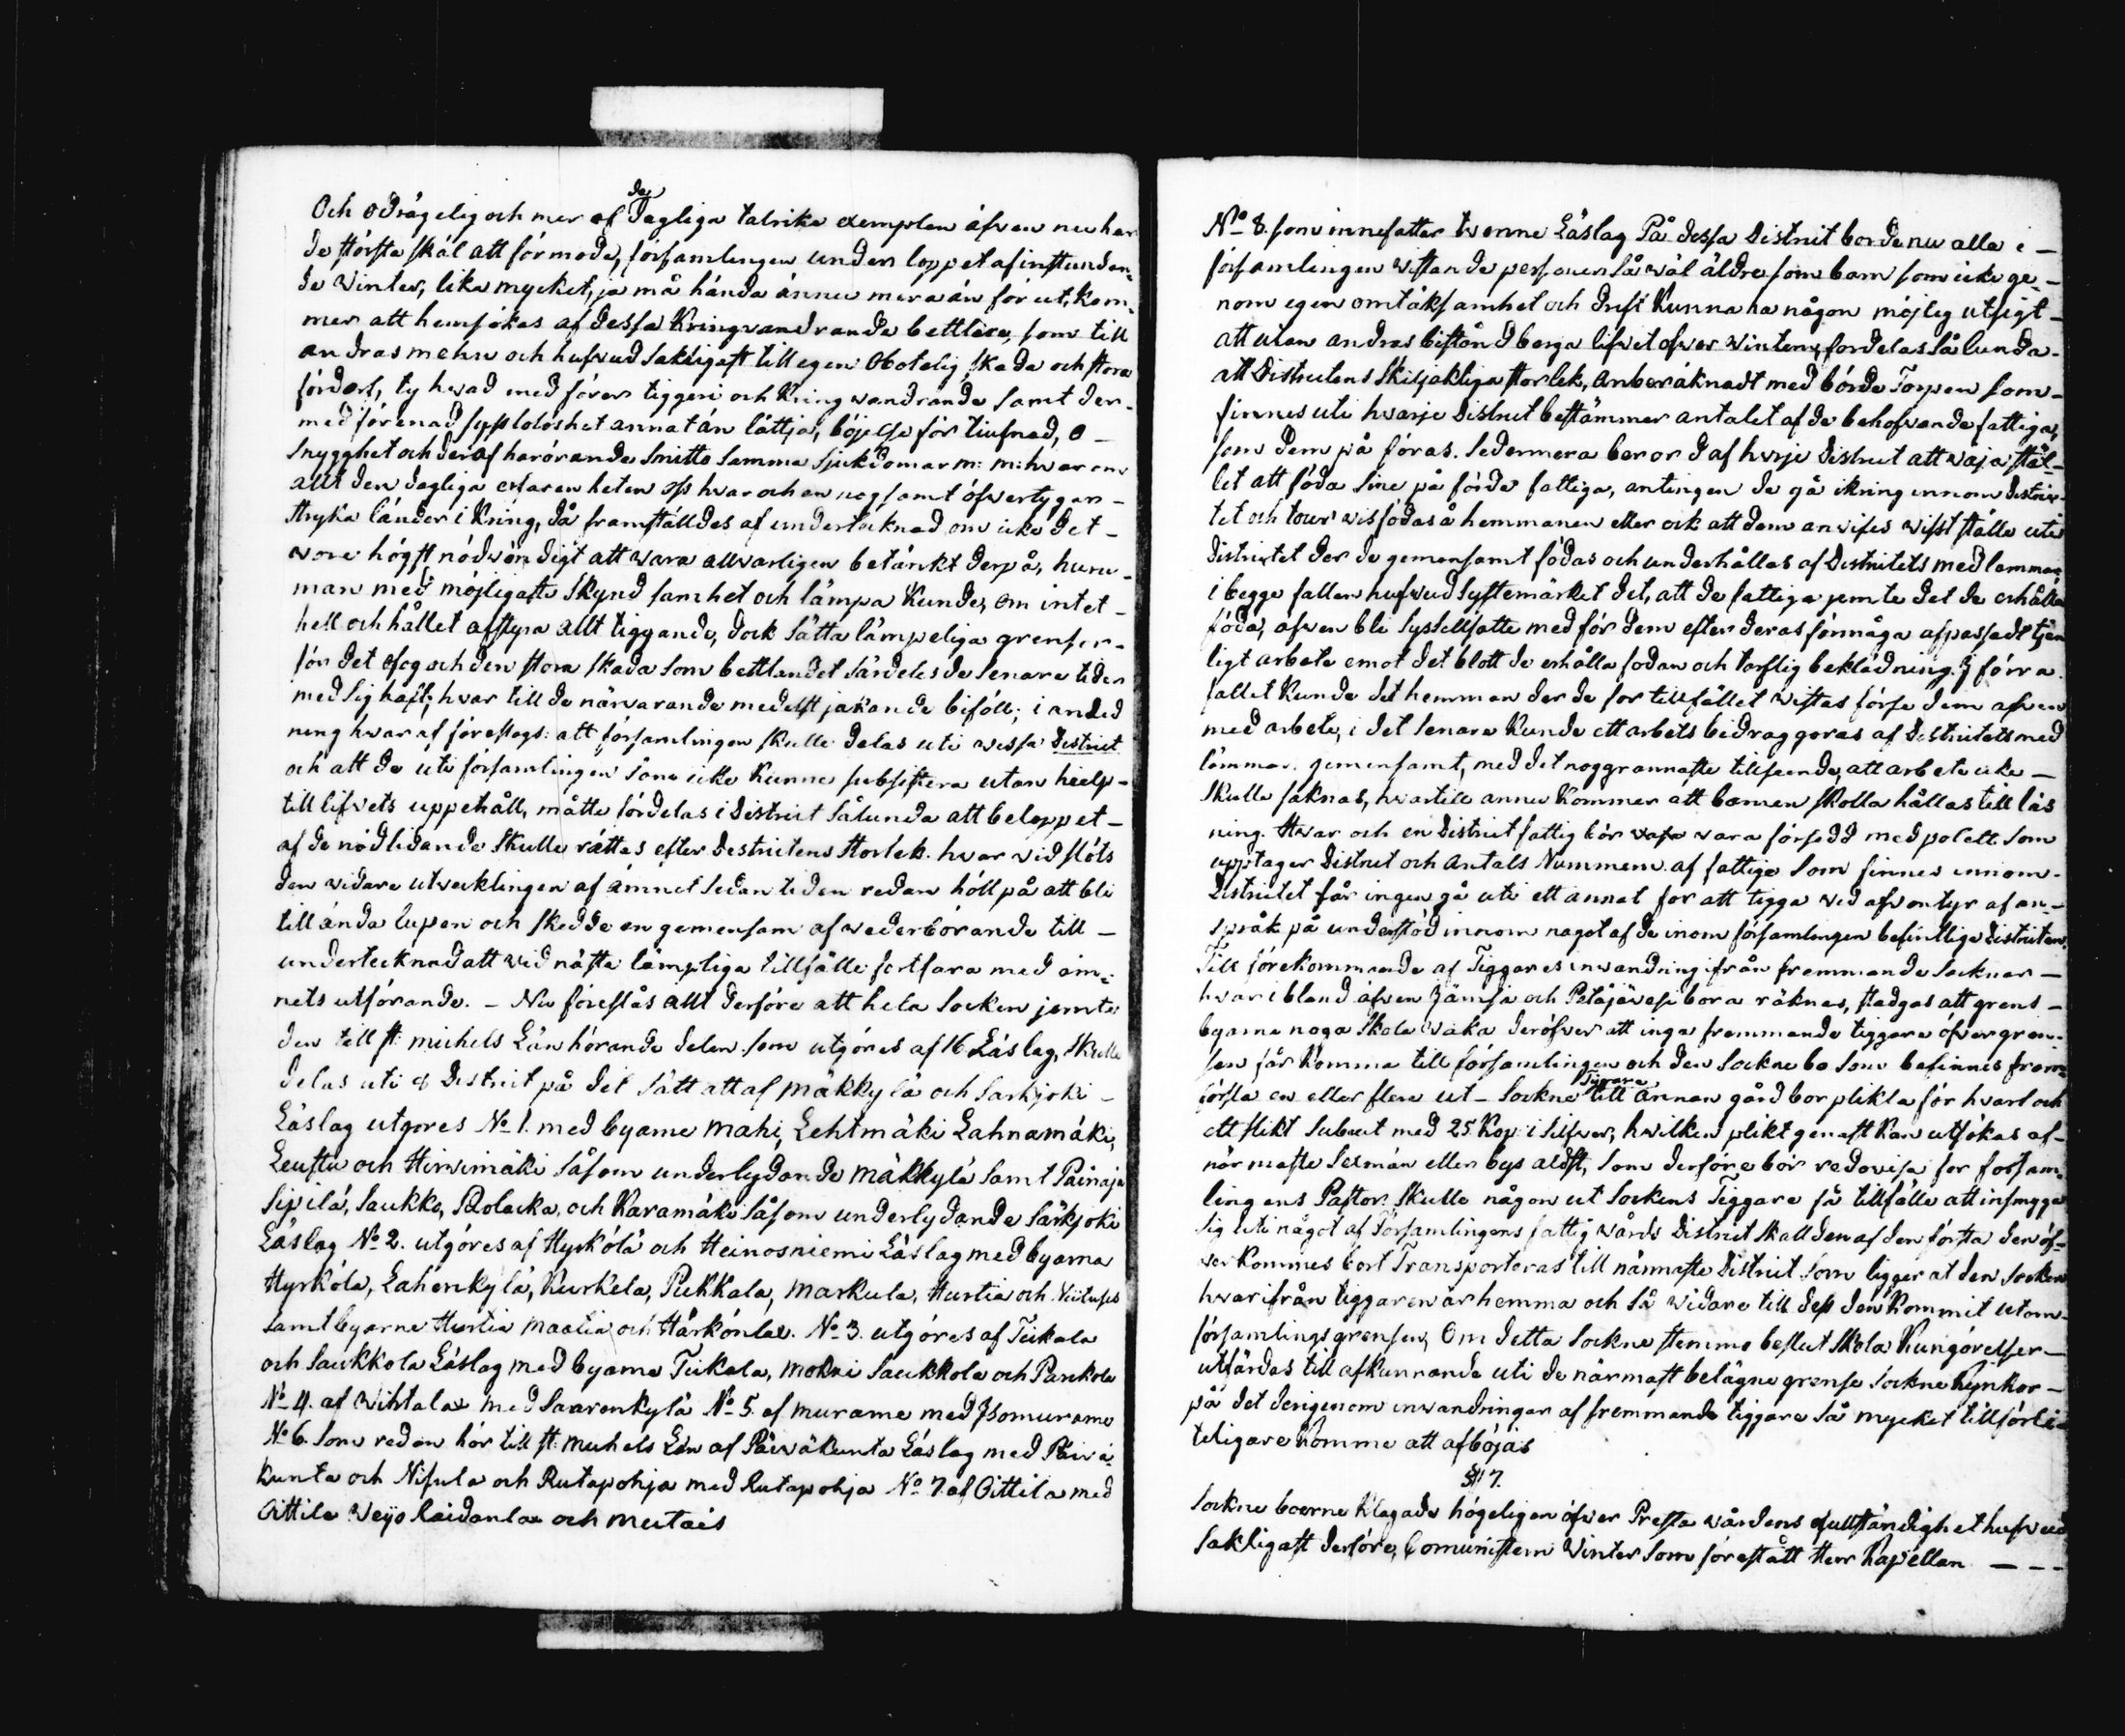 Och odrägelig och mer af de dagliga talrika exemplen äfven nu har
de största skäl att förmoda, församlingen under loppet af instunden-
de Winter, lika mycket, ja må hända ännu mera än för ut, kom-
mer att hemsökas af dessa Kringvandrande bettlare, som till
andras mehn och hufvud sakligast till egen obotelig skada och stora
förderf, ty hvad med förer tiggeri och Kring wandrande samt der-
med förenad sysslolöshet annat än lättja, böjelse för tiufnad, o-
snygghet och deraf harörande Smitto samma Sjukdomar m: m: hvarom
allt den dagliga erfarenheten oss hvar och en nogsamt öfvertygar -
stryka länder i Kring, då framställdes af undertecknad om icke det -
wore högst nödwändigt att wara allvarligen betänkt derpå, huru-
man med möjligaste Skynd samhet och lämpa Kunde, om intet -
hell och hållet afstyra allt tiggande, dock sätta lämpeliga grenser -
för det ofog och den stora skada som bettlandet särdeles de senare tider
med sig haft; hvar till de närvarande medelst jakande biföll; i anled
ning hvar af föreslogs: att församlingen skulle delas uti wissa District
och att de uti församlingen som icke Kunna subsistera utan hielp -
till lifvets uppehåll, måtte fördelas i District Sålunda att beloppet -
af de nödlidande Skulle rättas efter Districtens Storlek. hvar vid slöts
den widare utvecklingen af ämnet sedan tiden redan höll på att bli
till ända lupen och skedde en gemensam af wederbörande till -
undertecknad att vid näste lämpliga tillfälle fortfara med äm-
nets utförande. - Nu föreslås allt derföre att hela Socken jemte
den till St: michels Län hörande delen som utgöres af 16 Läslag, Skulle
delas uti 8 District på det sätt att af Mäkkylä och Särkjoki -
Läslag utgöres No 1. med byarne Mahi, Lehtmäki Lahnamäki,
Leustu och Hirvimäki såsom underlydande Mäkkylä samt Painaja
Sipilä, Saukko, Rolacka, och Karamäki såsom underlydande Särkjoki
Läslag No 2. utgöres af Hyrkölä och Heinosniemi Läslag med byarna
Hyrköla, Lahenkylä, Kurkela, Pukkala, Markula, Hurtia och
samt byarne Hurtia Maatia och Härkönlax. No 3. utgöres af Tiikala
och Saukkola Läslag med byarna Tiikala, Mokri Saukkola och Parkola
No 4. af Wihtalax med Saarenkylä No 5. af Murame med Isomurame
No 6. Som redan hör till St: Michels Län af Päiväkunta Läslag med Päivä-
kunta och Nisula och Rutapohja med Rutapohja No 7. af Oittila med
Oittila Weijo Raidanlax och Meetais
No 8. som innefattar twenne Läslag På dessa District borde nu alla i -
församlingen wistande personer så wäl äldre som barn som icke ge -
nom egen omtäksamhet och drift Kunna ha någon möjlig utsigt -
att utan andras bistånd berga lifvet öfver Wintern, fördelas så lunda -
att Districtens Skiljaktiga storlek, anberäknadt med både Torpen som -
finnes uti hvarje District bestämmer antalet af de behofvande fattiga,
som dem på föras. Sedermera beror d af hvarje District att wälja stäl-
let att föda sine på förda fattiga, antingen de gå ikring innom Distric-
tet och tour vis födas å hemmanen eller ock att dem anvises wisst ställe uti
Districtet der de gemensamt födas och underhållas af Districtets med lemmar
i begge fallen hufvud syftemärket det, att de fattiga jemte det de erhålla
föda, äfven bli sysselsatte med för dem efter deras förmåga afpassadt tjen
ligt arbete emot det blott de erhålla födan och torftig beklädning. I förra
fallet Kunde det hemman der de för tillfället wistas förse dem äfven
med arbete, i det senare Kunde ett arbets bidrag göras af Districtets med
lemmar gemensamt, med det noggrannaste tillseende, att arbete icke -
skulle saknas, hvartill ännu Kommer att barnen skolla hållas till läs
ning. Hvar och en District fattig bör wara försedd med polett som
upptager District och antals Nummern af fattige som finnes innom -
Districtet får ingen gå uti ett annat för att tigga wid äfventyr af an -
språk på understöd innom nagot af de inom församlingen befintliga Districten.
Till förekommande af Tiggares invandring ifrån fremmande Socknar -
hvar ibland äfven Jämsä och Petäjävesi bora räknas, stadgas att grens -
byarne noga skola waka deröfver att inga fremmande tiggare öfver gren-
sen får Komma till församlingen och den Sockne bo som befinnes fram
forsla en eller flere ut - Sockne Tiggare till annan gård bör plikta för hvart och
ett slikt Subeut med 25 Kop: i Silfver, hwilken plikt genast kan utsökas af -
närmaste Sexmän eller bys äldst, som derföre bör redovisa för försam-
lingens Pastor. Skulle någon ut Sockens Tiggare få tillfälle att insmyga
sig uti något af Församlingens fattig wårds District skall den af den första den öf-
ver kommes bort Transporteras till närmaste District som ligger åt den Socken
hvarifrån tiggaren är hemma och så widare till dess den Kommit utom -
församlings grensen, Om detta Sockne stemmo beslut skola Kungörelser -
utfärdas till afkunnande uti de närmast belägne grense Sockne Kyrkor -
på det derigenom invandringar af fremmande tiggare så mycket tillförli-
teligare komme att afböjas
§ 7.
Sockne boerne Klagade högeligen öfver Presta wårdens ofullständighet hufvud
sakligast derföre, Comministern Winter som förestått Herr Kapellan - - -